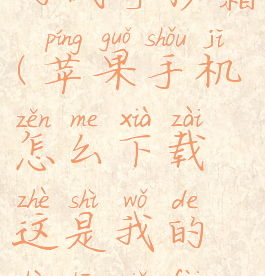 píng guǒ shǒu jī
（苹果手机
zěn me xià zài
怎么下载
zhè shì wǒ de
这是我的